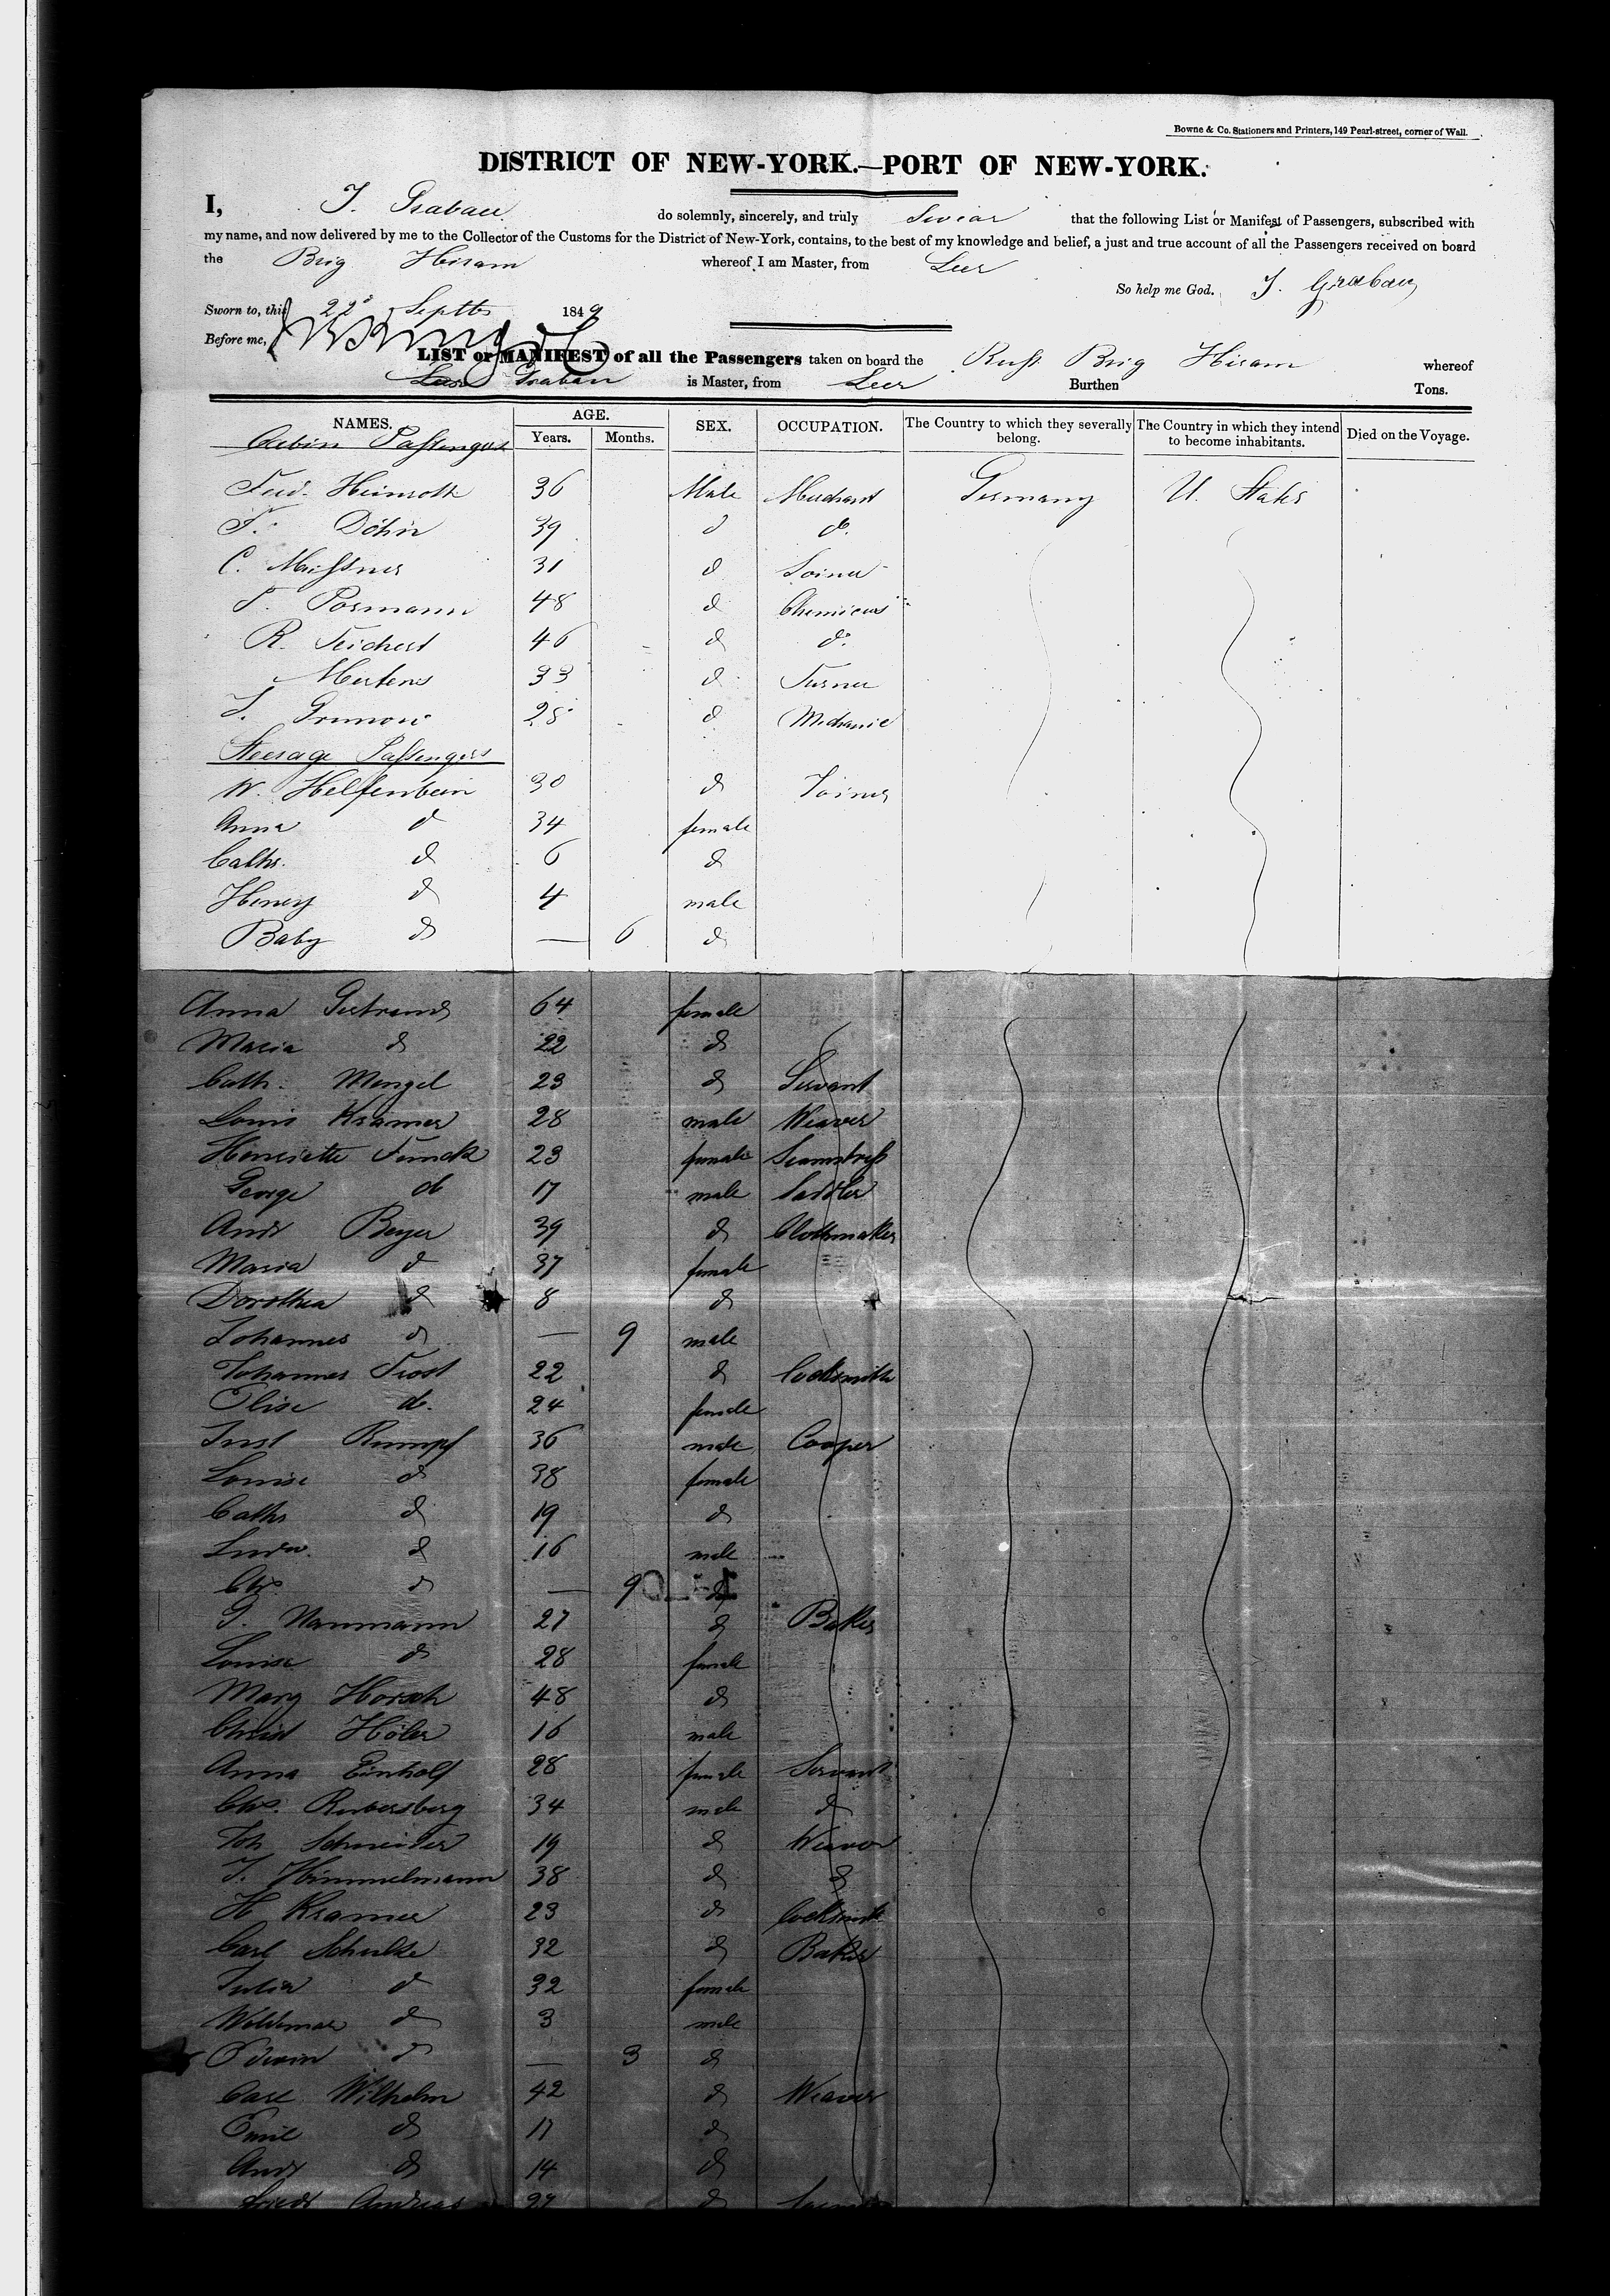 Bowne & Co. Stationers and Printers, 149 Pearl-street, corner of Wall.
DISTRICT OF NEW-YORK.—PORT OF NEW-YORK.
I, J. Grabau do solemnly, sincerely, and truly Swear that the following List or Manifest of Passengers, subscribed with
my name, and now delivered by me to the Collector of the Customs for the District of New-York, contains, to the best of my knowledge and belief, a just and true account of all the Passengers received on board
the Brig Hiram whereof I am Master, from Leer
So help me God. J. Grabau
Sworn to, this 22d Septbr 1849
Before me,
LIST or MANIFEST of all the Passengers taken on board the Russ Brig Hiram whereof
Grabau is Master, from Leer Burthen Tons.
NAMES. AGE. Years. Months. SEX. OCCUPATION. The Country to which they severally belong. The Country in which they intend to become inhabitants. Died on the Voyage.
Cabin Passengers
Ferd. Heinroth 36 Male Merchant Germany U. States
F. Döhn 39 d do.
C. Meissner 31 d Joiner
F. Pormann 48 d Chemicus
R. Teichert 46 d do.
Mertens 33 d Turner
J. Grunow 28 d Mechanic
Steerage Passengers
W. Helfenbein 30 d Joiner
Anna d 34 female
Cathr. d 6 d
Henry d 4 male
Baby d — 6 d
Anna Gertrand 64 female
Maria d 22 d
Cath. Mengel 23 d Servant
Louis Kramer 28 male Weaver
Henriette Funck 23 female Seamstress
George do 17 male Saddler
Andr Beyer 39 d Clothmaker
Maria d 37 female
Dorothea d 8 d
Johannes d — 9 male
Johannes Frost 22 d Locksmith
Elise do. 24 female
Just Rumpf 36 male Cooper
Louise d 38 female
Cathr d 19 d
Ludw. d 16 male
Chr d — 9 d
G. Naumann 27 d Baker
Louise d 28 female
Marg Horsch 48 d
Christ Höler 16 male
Anna Einholf 28 female Servant
Chr. Rubersberg 34 male d
Joh Schneider 19 d Weaver
J. Himmelmann 38 d d
H Kramer 23 d Locksmith
Carl Schulke 32 d Baker
Julia d 32 female
Woldemar d 3 male
Edwin d — 3 d
Carl Wilhelm 42 d Weaver
Emil d 11 d
Andr d 14 d
Friedr Andreas 27 d